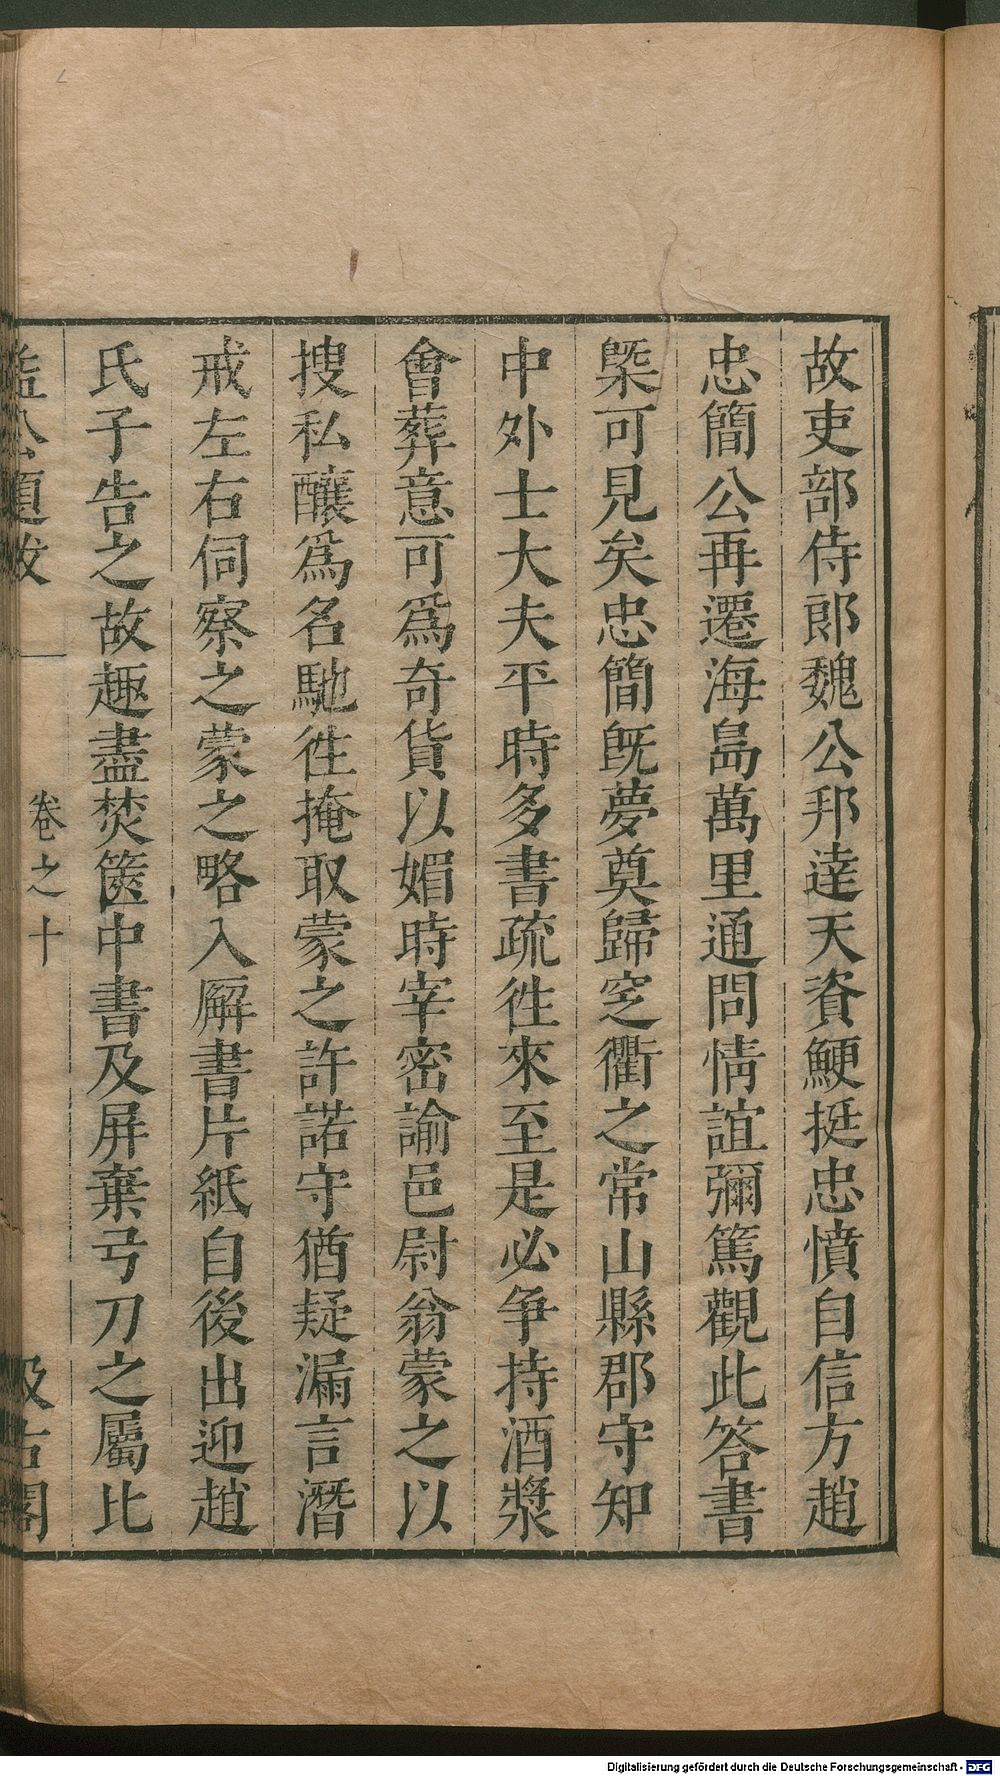 故吏部侍郎魏公邦達天資鯁挺忠憤自信方趙
忠簡公再遷海島萬里通問情誼彌篤觀此答書
槩可見矣忠簡旣夢奠歸窆衢之常山縣郡守知
中外士大夫平時多書疏徃來至是必争持酒漿
會葬意可爲奇貨以媚時宰密諭邑尉翁蒙之以
搜私釀爲名馳徃掩取蒙之許諾守猶疑漏言潛
戒左右伺察之蒙之略入廨書片紙自後出迎趙
氏子告之故趣盡焚篋中書及屏棄弓刀之屬比
益公題跋 卷之十 汲古閣
Digitalisierung gefördert durch die Deutsche Forschungsgemeinschaft - DFG